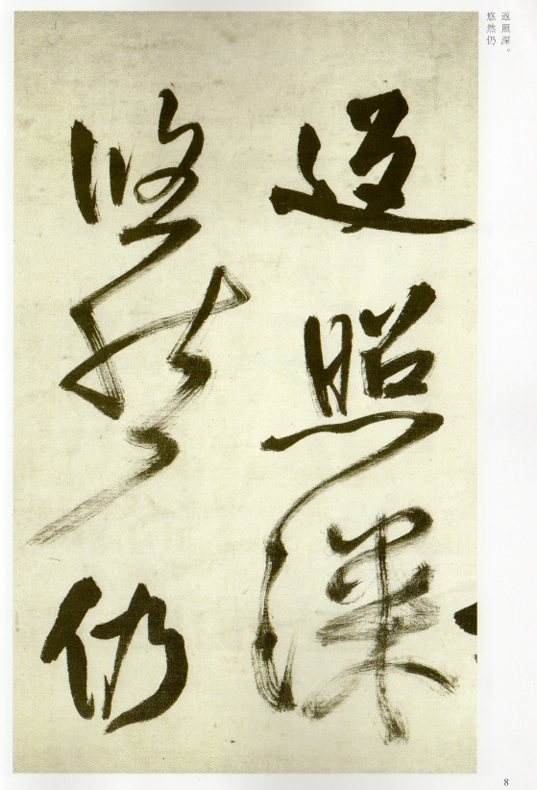 返照深。
悠然仍
返照深
悠然仍
8